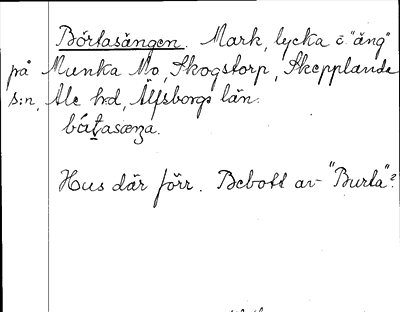 Bórtasängen. Mark, lycka o. "äng"
på Munka Mo, Skogstorp, Skepplanda
s:n, Ale hd, Älfsborgs län.
Hus där förr. Bebott av "Burta"?